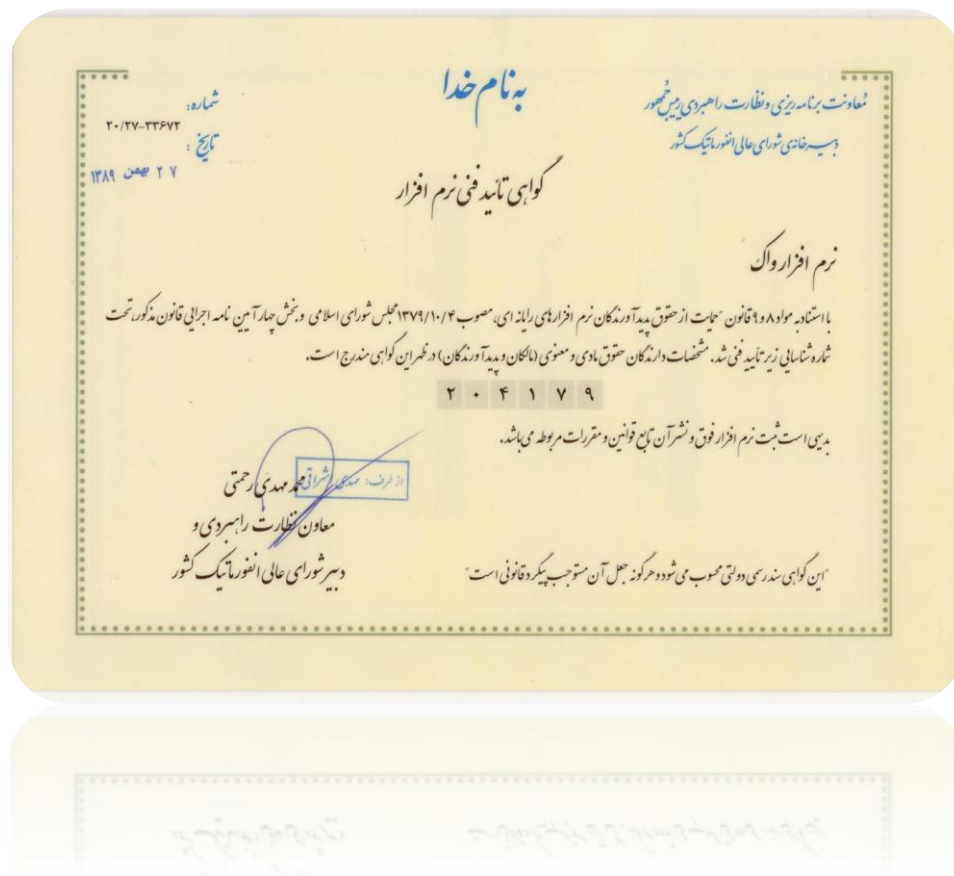 به نام خدا
معاونت برنامه ریزی و نظارت راهبردی رییس جمهور
دبیرخانه‌ی شورای عالی انفورماتیک کشور
شماره:
۲۰/۲۷-۳۳۶۷۲
تاریخ :
۲۷ بهمن ۱۳۸۹
گواهی تائید فنی نرم افزار
نرم افزار واک
با استناد به مواد ۸ و ۹ قانون "حمایت از حقوق پدیدآورندگان نرم افزارهای رایانه ای، مصوب ۱۳۷۹/۱۰/۴ مجلس شورای اسلامی و بخش چهار آیین نامه اجرایی قانون مذکور، تحت
شماره شناسایی زیر تایید فنی شد. مشخصات دارندگان حقوق مادی و معنوی (مالکان و پدیدآورندگان) در ظهر این گواهی مندرج است.
۲۰۴۱۷۹
بدیهی است ثبت نرم افزار فوق و نشر آن تابع قوانین و مقررات مربوطه می باشد.
از طرف: مهدی اشراقی
محمد مهدی رحمتی
معاون نظارت راهبردی و
دبیر شورای عالی انفورماتیک کشور
"این گواهی سند رسمی دولتی محسوب می شود و هرگونه جعل آن مستوجب پیگرد قانونی است"